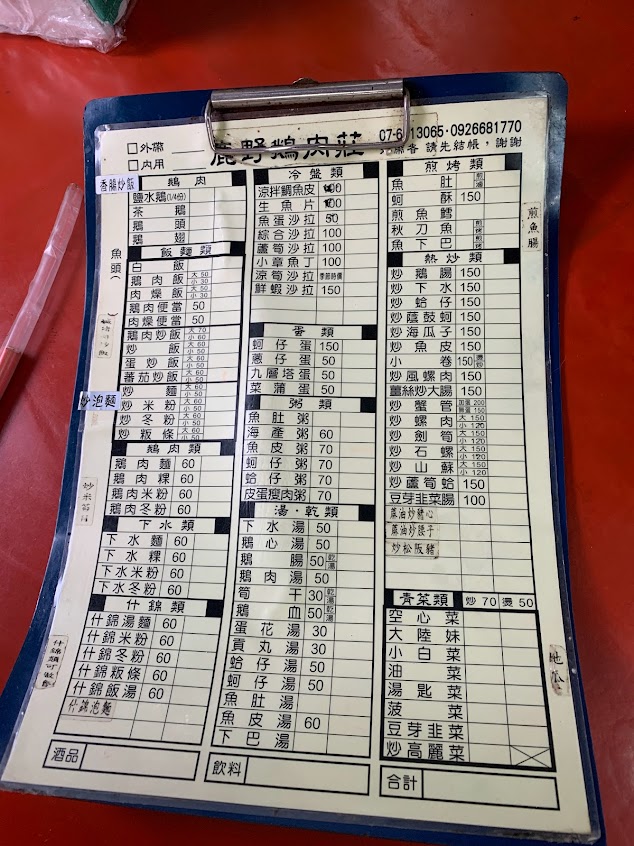 □外帶
□內用
鹿野鵝肉莊
07-6 13065·0926681770
請先結帳，謝謝
香腸炒飯
鵝肉
鹽水鵝(1/4份)
茶鵝
鵝頭
鵝翅
魚頭(
飯麵類
白飯
鵝肉飯 大50 小30
肉燥飯 大50 小30
鵝肉便當 50
肉燥便當 50
鵝肉炒飯 大70 小60
炒飯 大60 小50
蛋炒飯 大60 小50
蕃茄炒飯 大60 小50
炒泡麵
炒麵 大60 小50
炒米粉 大60 小50
炒冬粉 大60 小50
炒粄條 大60 小50
鵝肉類
鵝肉麵 60
鵝肉粿 60
鵝肉米粉 60
鵝肉冬粉 60
下水類
下水麵 60
下水粿 60
下水米粉 60
下水冬粉 60
什錦類
什錦湯麵 60
什錦米粉 60
什錦冬粉 60
什錦粄條 60
什錦飯湯 60
什錦泡麵
酒品
冷盤類
涼拌鯛魚皮 100
生魚片 100
魚蛋沙拉 50
綜合沙拉 100
蘆筍沙拉 100
小章魚丁 100
涼筍沙拉 季節時價
鮮蝦沙拉 150
蛋類
蚵仔蛋 150
蔥仔蛋 50
九層塔蛋 50
菜蒲蛋 50
粥類
魚肚粥
海產粥 60
魚皮粥 70
蚵仔粥 70
蛤仔粥 70
皮蛋瘦肉粥 70
湯·乾類
下水湯 50
鵝心湯 50
鵝腸 50 乾湯
鵝肉湯 50
筍干 30 乾湯
鵝血 50 乾湯
蛋花湯 30
貢丸湯 30
蛤仔湯 50
蚵仔湯 50
魚肚湯
魚皮湯 60
下巴湯
飲料
煎烤類
魚肚 煎滷
蚵酥 150
煎魚鱈
秋刀魚 煎烤
魚下巴 煎烤
煎魚腸
熱炒類
炒鵝腸 150
炒下水 150
炒蛤仔 150
炒蔭鼓蚵 150
炒海瓜子 150
炒魚皮 150
小卷 150
炒風螺肉 150
薑絲炒大腸 150
炒蟹管
炒螺肉 大150 小120
炒劍筍 大150 小120
炒石螺 大150 小120
炒山蘇 大150 小120
炒蘆筍蛤 150
豆芽韭菜腸 100
蔴油炒豬心
蔴油炒腰子
炒松阪豬
青菜類 炒70 燙50
空心菜
大陸妹
小白菜
油菜
湯匙菜
菠菜
豆芽韭菜
炒高麗菜
地瓜
合計